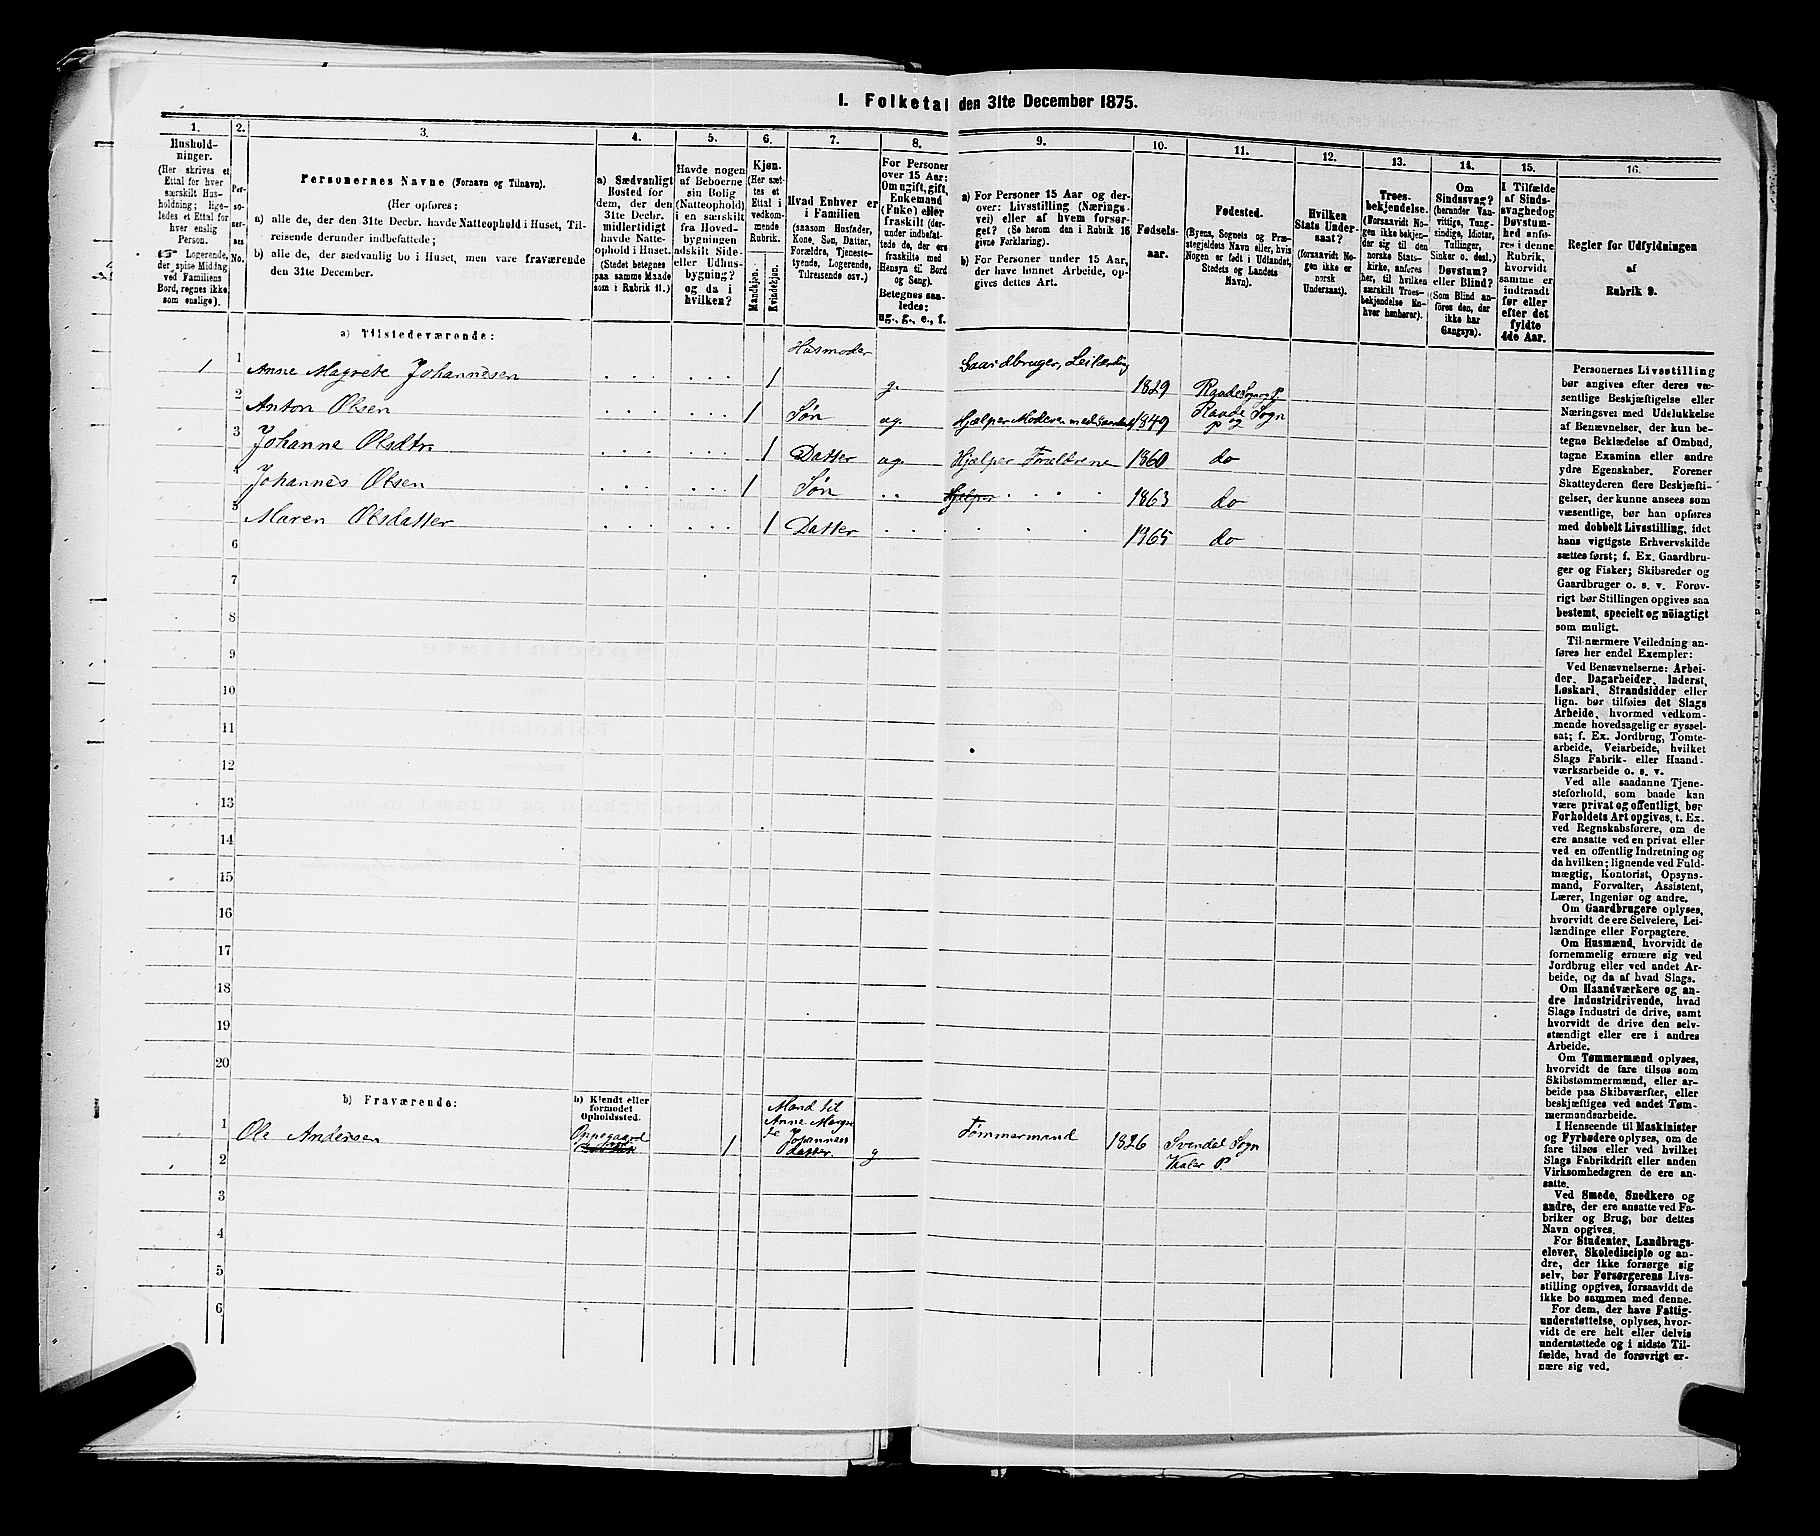 1. Folketal den 31te December 1875.
1.
Hushold-
ninger.
(Her skrives et
Ettal for hver
særskilt Hus-
holdning; lige-
ledes et Ettal for
hver enslig
Person.
☞ Logerende,
der spise Middag
ved Familiens
Bord, regnes ikke
som enslige).
2.
Per-
so-
ner-
nes
No.
3.
Personernes Navne (Fornavn og Tilnavn).
(Her opføres:
a) alle de, der den 31te Decbr. havde Natteophold i Huset, Til-
reisende derunder indbefattede;
b) alle de, der sædvanlig bo i Huset, men vare fraværende
den 31te December.
4.
a) Sædvanligt
Bosted for
dem, der den
31te Decbr.
midlertidigt
havde Natte-
ophold i Huset.
(Stedet betegnes
paa samme Maade
som i Rubrik 11.)
5.
Havde nogen
af Beboerne
sin Bolig
(Natteophold)
i en særskilt
fra Hoved-
bygningen
adskilt Side-
eller Udhus-
bygning?
og da i
hvilken?
6.
Kjøn.
(Her sæt-
tes et
Ettal i
vedkom-
mende
Rubrik.
Mandkjøn.
Kvindekjøn.
7.
Hvad Enhver er
i Familien
(saasom Husfader,
Kone, Søn, Datter,
Forældre, Tjeneste-
tyende, Logerende,
Tilreisende osv.)
8.
For Personer
over 15 Aar:
Om ugift, gift,
Enkemand
(Enke) eller
fraskilt (der-
under indbefat-
tede de, der ere
fraskilte med
Hensyn til Bord
og Seng).
Betegnes saa-
ledes:
ug., g., e., f.
9.
a) For Personer 15 Aar og der-
over: Livsstilling (Nærings-
vei) eller af hvem forsør-
get? (Se herom den i Rubrik 16
givne Forklaring).
b) For Personer under 15 Aar,
der have lønnet Arbeide, op-
gives dettes Art.
10.
Fødsels-
aar.
11.
Fødested.
(Byens, Sognets og Præ-
stegjeldets Navn eller, hvis
Nogen er født i Udlandet,
Stedets og Landets
Navn).
12.
Hvilken
Stats Under-
saat?
(forsaavidt No-
gen ikke er
norsk
Undersaat).
13.
Troes-
bekjendelse.
(Forsaavidt No-
gen ikke bekjen-
der sig til den
norske Stats-
kirke, anføres
her, til hvilken
særskilt Troes-
bekjendelse En-
hver henhører).
14.
Om
Sindssvag?
(herunder Van-
vittige, Tung-
sindige, Idioter,
Tullinger,
Sinker o. desl.)
Døvstum?
eller Blind?
(Som Blind an-
føres den, der
ikke har
Gangsyn).
15.
I Tilfælde
af Sinds-
svaghed og
Døvstum-
hed anfø-
res i denne
Rubrik,
hvorvidt
samme er
indtraadt
før eller
efter det
fyldte
4de Aar.
16.
Regler for Udfyldningen
af
Rubrik 9.
a) Tilstedeværende:
1 1 Anne Magrete Johannesen . . . . . . . 1 Husmoder g. Gaardbruger, Leilænding 1829 Raade Sogn og P.
2 Anton Olsen . . . . . . . 1 Søn ug. Hjælper Moderen med Gaarden 1849 Raade Sogn og P
3 Johanna Olsdtr. . . . . . . . 1 Datter ug. Hjælper Forældrene 1860 do
4 Johannes Olsen . . . . . . . 1 Søn . . Hjelper . . . 1863 do
5 Maren Olsdatter . . . . . . . 1 Datter . . . . . . 1865 do
6
7
8
9
10
11
12
13
14
15
16
17
18
19
20
b) Fraværende:
b) Kjendt eller
formodet
Opholdssted.
1 Ole Andersen Oppegaard 1 Mand til
Anne Margre
te Johannes
datter. g Tømmermand 1826 Svendal Sogn
Vaaler P.
2
3
4
5
6
Personernes Livsstilling
bør angives efter deres væ-
sentlige Beskjæftigelse eller
Næringsvei med Udelukkelse
af Benævnelser, der kun be-
tegne Beklædelse af Ombud,
tagne Examina eller andre
ydre Egenskaber. Forener
Skatteyderen flere Beskjæfti-
gelser, der kunne ansees som
væsentlige, bør han opføres
med dobbelt Livsstilling, idet
hans vigtigste Erhvervskilde
sættes først; f. Ex. Gaardbru-
ger og Fisker; Skibsreder og
Gaardbruger o. s. v. Forøv-
rigt bør Stillingen opgives saa
bestemt, specielt og nöiagtigt
som muligt.
Til nærmere Veiledning an-
føres her endel Exempler:
Ved Benævnelserne: Arbei-
der, Dagarbeider, Inderst,
Løskarl, Strandsidder eller
lign. bør tilføies det Slags
Arbeide, hvormed vedkom-
mende hovedsagelig er syssel-
sat; f. Ex. Jordbrug, Tomte-
arbeide, Veiarbeide, hvilket
Slags Fabrik- eller Haand-
værksarbeide o. s. v.
Ved alle saadanne Tjene-
steforhold, som baade kan
være privat og offentligt, bør
Forholdets Art opgives, t. Ex.
ved Regnskabsførere, om de
ere ansatte ved en privat eller
ved en offentlig Indretning og
da hvilken; lignende ved Fuld-
mægtig, Kontorist, Opsyns-
mand, Forvalter, Assistent,
Lærer, Ingeniør og andre.
Om Gaardbrugere oplyses,
hvorvidt de ere Selveiere, Lei-
lændinge eller Forpagtere.
Om Husmænd, hvorvidt de
fornemmelig ernære sig ved
Jordbrug eller ved andet Ar-
beide, og da af hvad Slags.
Om Haandværkere og an-
dre Industridrivende, hvad
Slags Industri de drive, samt
hvorvidt de drive den selv-
stændigt eller ere i andres
Arbeide.
Om Tømmermænd oplyses,
hvorvidt de fare tilsøs som
Skibstømmermænd, eller ar-
beide paa Skibsværfter, eller
beskjæftiges ved andet Tøm-
mermandsarbeide.
I Henseende til Maskinister
og Fyrbødere oplyses, om de
fare tilsøs eller ved hvilket
Slags Fabrikdrift eller anden
Virksomhedsgren de ere an-
satte.
Ved Smede, Snedkere og
andre, der ere ansatte ved Fa-
briker og Brug, bør dettes
Navn opgives.
For Studenter, Landbrugs-
elever, Skoledisciple og an-
dre, der ikke forsørge sig
selv, bør Forsørgerens Livs-
stilling opgives, forsaavidt de
ikke bo sammen med denne.
For dem, der have Fattig-
understøttelse, oplyses, hvor-
vidt de ere helt eller delvis
understøttede og i sidste Til-
fælde, hvad de forøvrigt er-
nære sig ved.